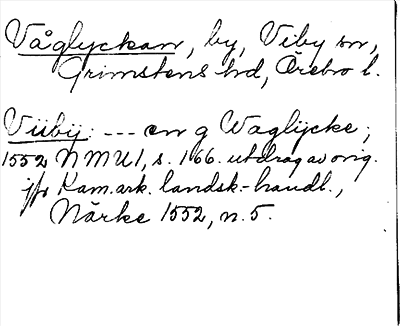 Våglyckan, by, Viby sn,
Grimstens hd, Örebro l.
Viibij: --- en g Waglijcke;
1552 NMU1, s. 166. utdrag av orig.
jfr Kam.ark. landsk.-handl.,
Närke 1552, n. 5.